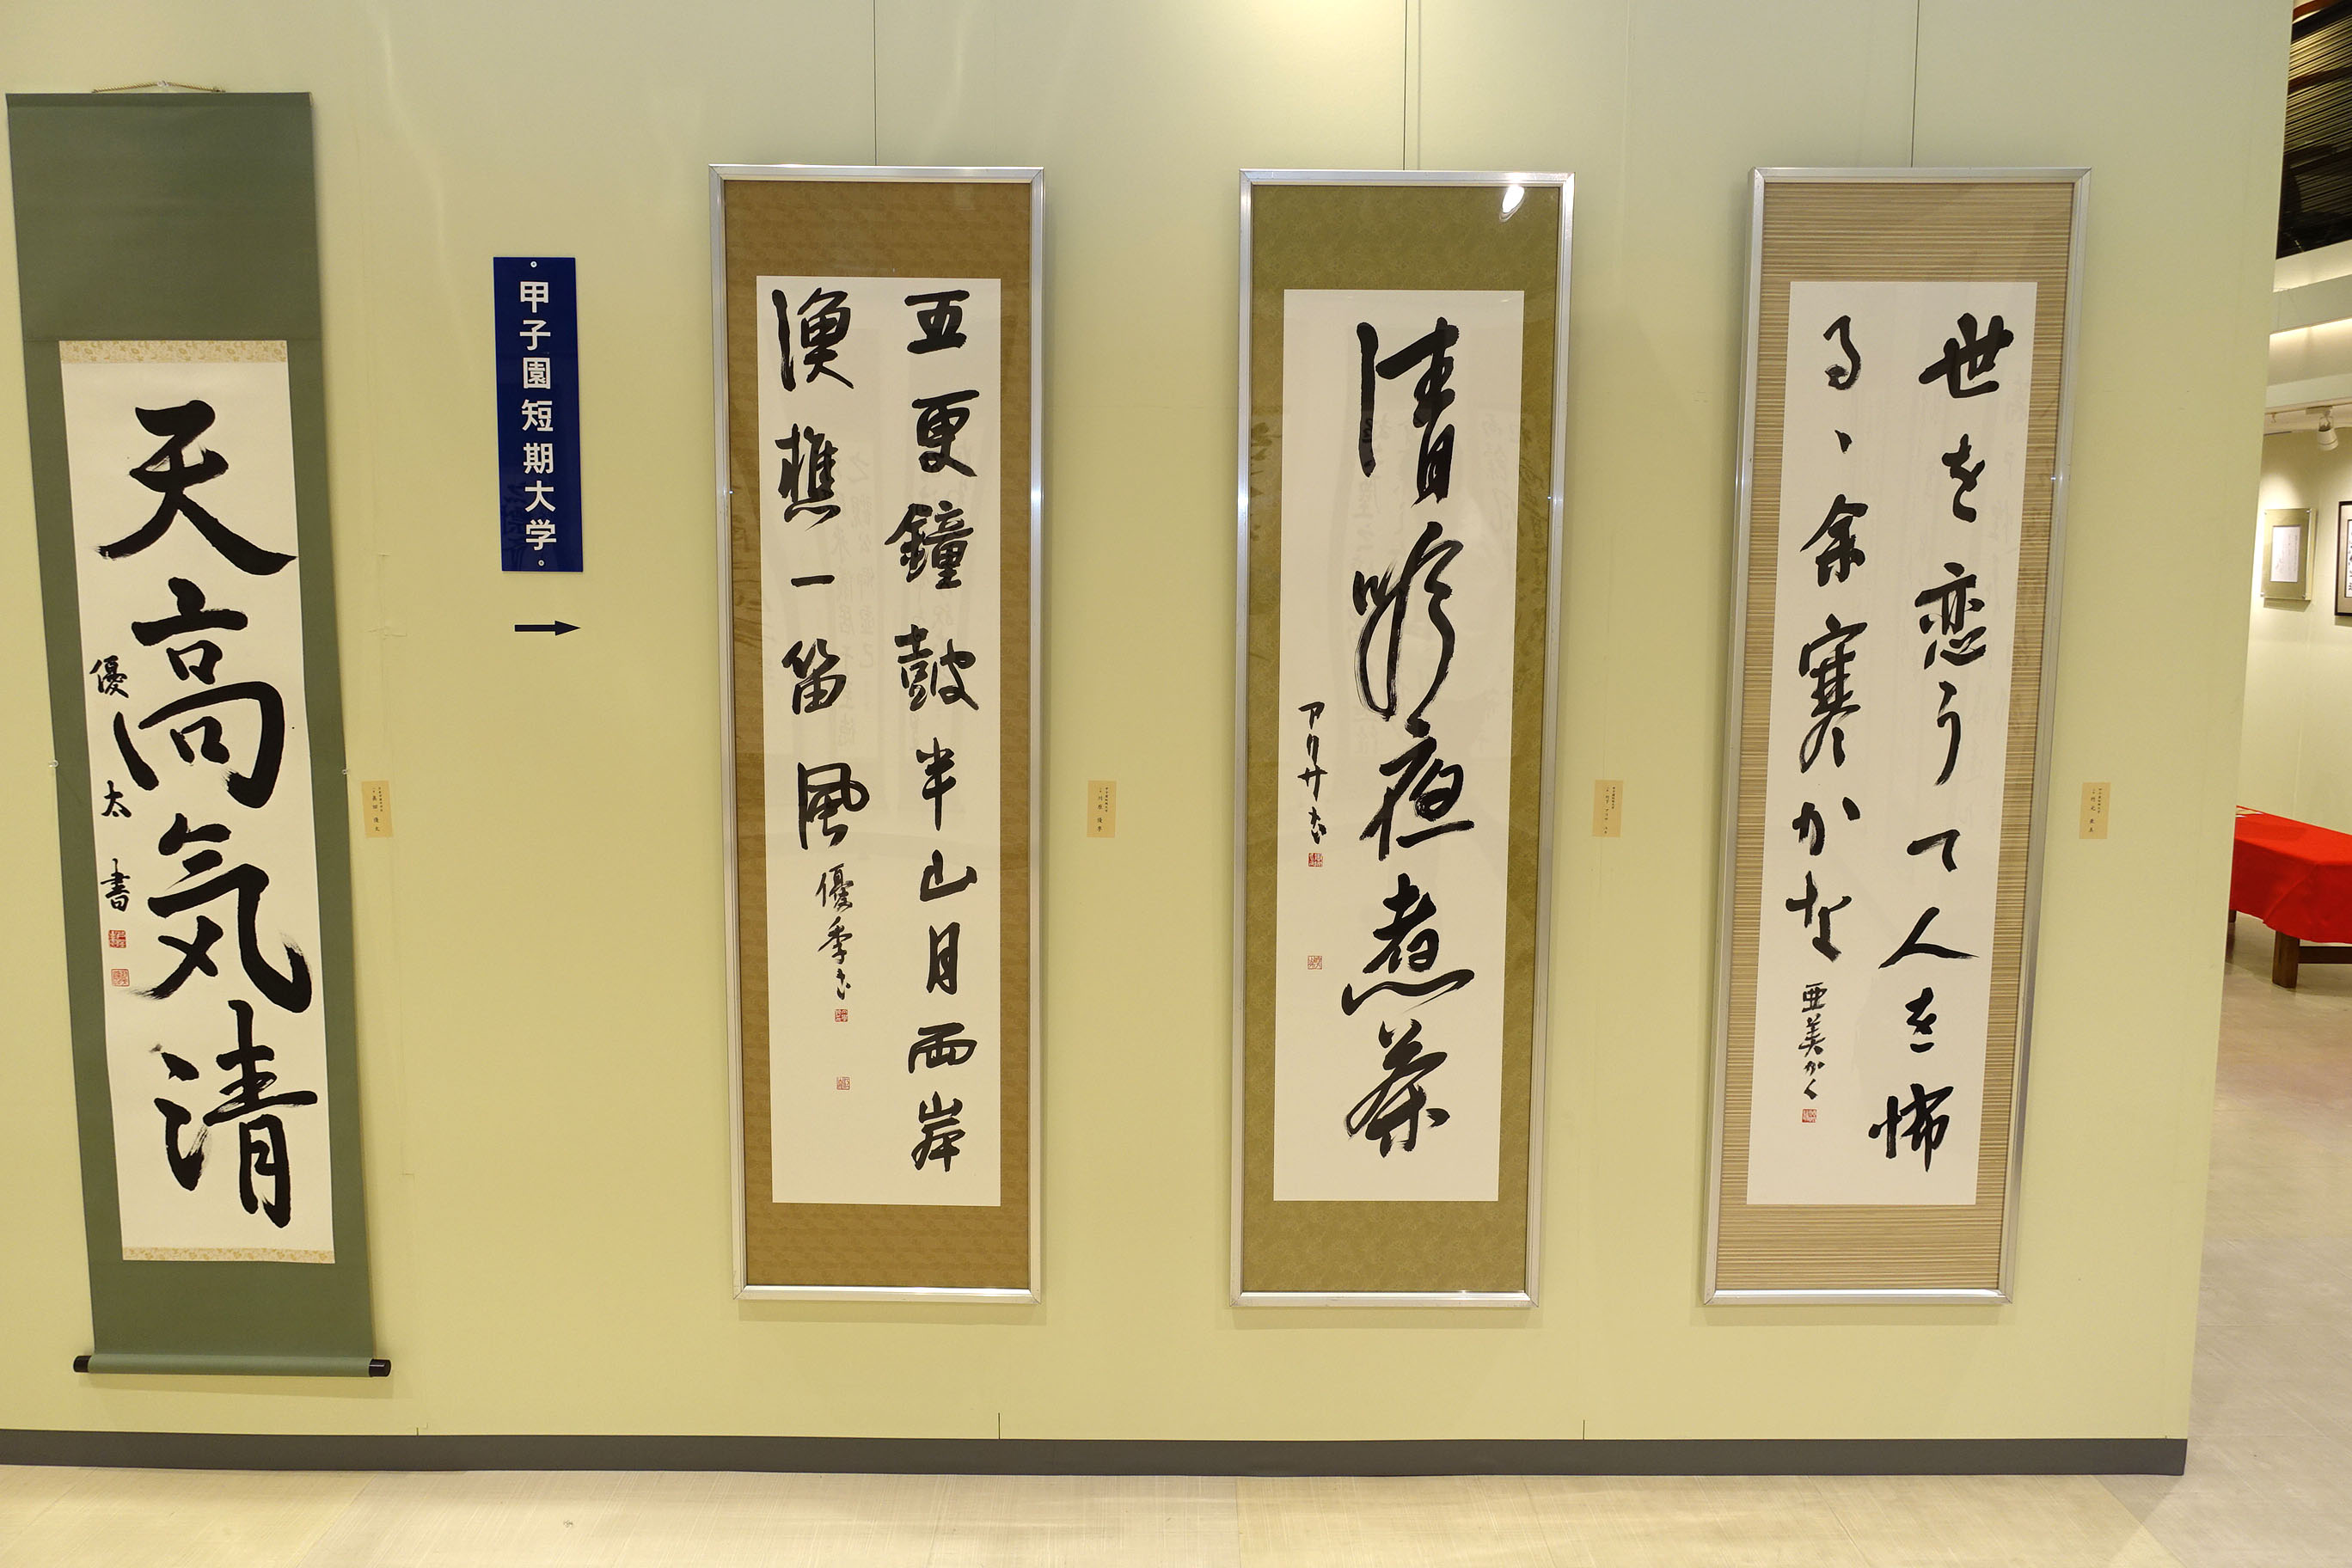 天高気清
優太書
甲子園短期大学
五更鐘鼓半山月西岸
漁樵一笛風
優季書
清吟夜煮茶
アリサ書
世を恋うて人を怖
る、余寒かな
亜美かく